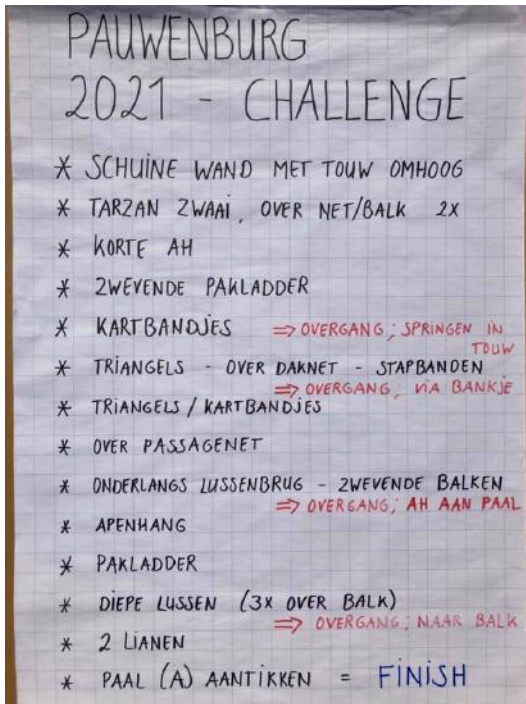 PAUWENBURG
2021 - CHALLENGE
* SCHUINE WAND MET TOUW OMHOOG
* TARZAN ZWAAI, OVER NET/BALK 2X
* KORTE AH
* ZWEVENDE PAKLADDER
* KARTBANDJES ⇒ OVERGANG; SPRINGEN IN
TOUW
* TRIANGELS - OVER DAKNET - STAPBANDEN
⇒ OVERGANG; VIA BANKJE
* TRIANGELS / KARTBANDJES
* OVER PASSAGENET
* ONDERLANGS LUSSENBRUG - ZWEVENDE BALKEN
⇒ OVERGANG; AH AAN PAAL
* APENHANG
* PAKLADDER
* DIEPE LUSSEN (3X OVER BALK)
⇒ OVERGANG; NAAR BALK
* 2 LIANEN
* PAAL (A) AANTIKKEN = FINISH